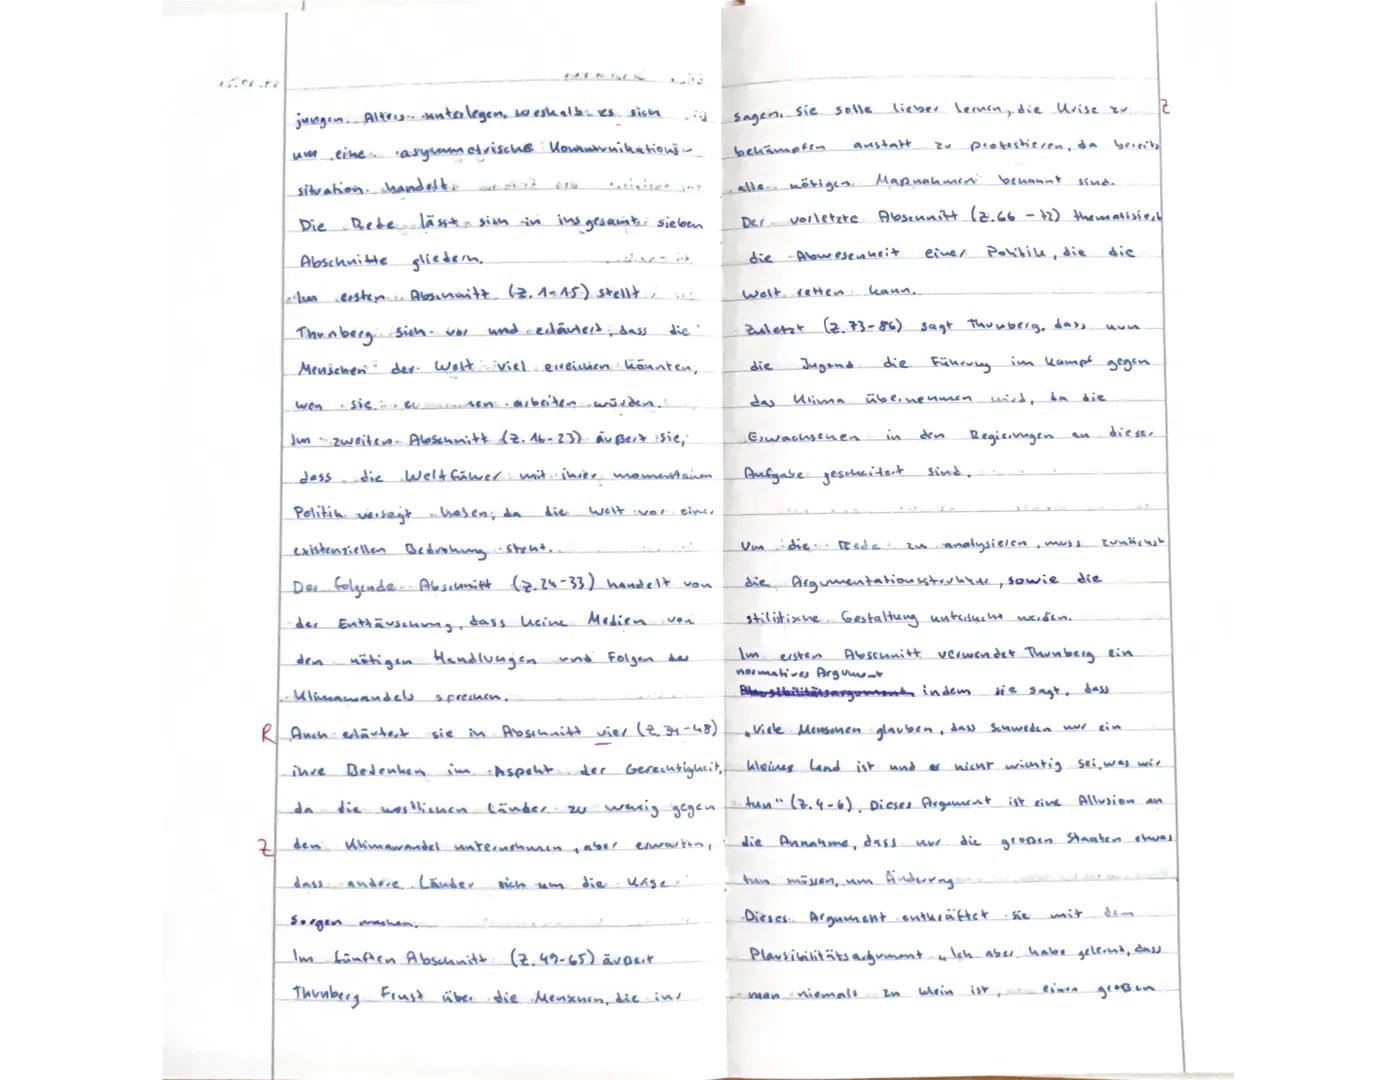 jungen Alters unterlegen, weshalb es sich
um eine asymmetrische Kommunikations-
situation handelt.
Die Rede lässt sich in insgesamt sieben
Abschnitte gliedern.
Im ersten Abschnitt (Z. 1-15) stellt
Thunberg sich vor und erläutert, dass die
Menschen der Welt viel erreichen könnten,
wen sie arbeiten würden.
Im zweiten Abschnitt (Z. 16-23) äußert sie,
dass die Weltführer mit ihrer momentanen
Politik versagt haben, da die Welt vor einer
existenziellen Bedrohung steht.
Der folgende Abschnitt (Z. 24-33) handelt von
der Enttäuschung, dass keine Medien von
den nötigen Handlungen und Folgen des
Klimawandels sprechen.
R Auch erläutert sie in Abschnitt vier (Z. 34-48)
ihre Bedenken im Aspekt der Gerechtigkeit,
da die westlichen Länder zu wenig gegen
Z den Klimawandel unternehmen, aber erwarten,
dass andere Länder sich um die Krise
sorgen machen.
Im fünften Abschnitt (Z. 49-65) äußert
Thunberg Frust über die Menschen, die ihr
sagen, sie solle lieber lernen, die Krise zu Z
bekämpfen anstatt zu protestieren, da bereits
alle nötigen Maßnahmen bekannt sind.
Der vorletzte Abschnitt (Z. 66 - 72) thematisiert
die Abwesenheit einer Politik, die die
Welt retten kann.
Zuletzt (Z. 73-86) sagt Thunberg, dass nun
die Jugend die Führung im Kampf gegen
das Klima übernehmen wird, da die
Erwachsenen in den Regierungen an dieser
Aufgabe gescheitert sind.
Um die Rede zu analysieren, muss zunächst
die Argumentationsstruktur, sowie die
stilistische Gestaltung untersucht werden.
Im ersten Abschnitt verwendet Thunberg ein
normatives Argument
Plausibilitätsargument, indem sie sagt, dass
„Viele Menschen glauben, dass Schweden nur ein
kleines Land ist und es nicht wichtig sei, was wir
tun" (Z. 4-6). Dieses Argument ist eine Allusion an
die Annahme, dass nur die großen Staaten etwas
tun müssen, um Änderung
Dieses Argument entkräftet sie mit dem
Plausibilitätsargument „Ich aber habe gelernt, dass
man niemals zu klein ist, einen großen